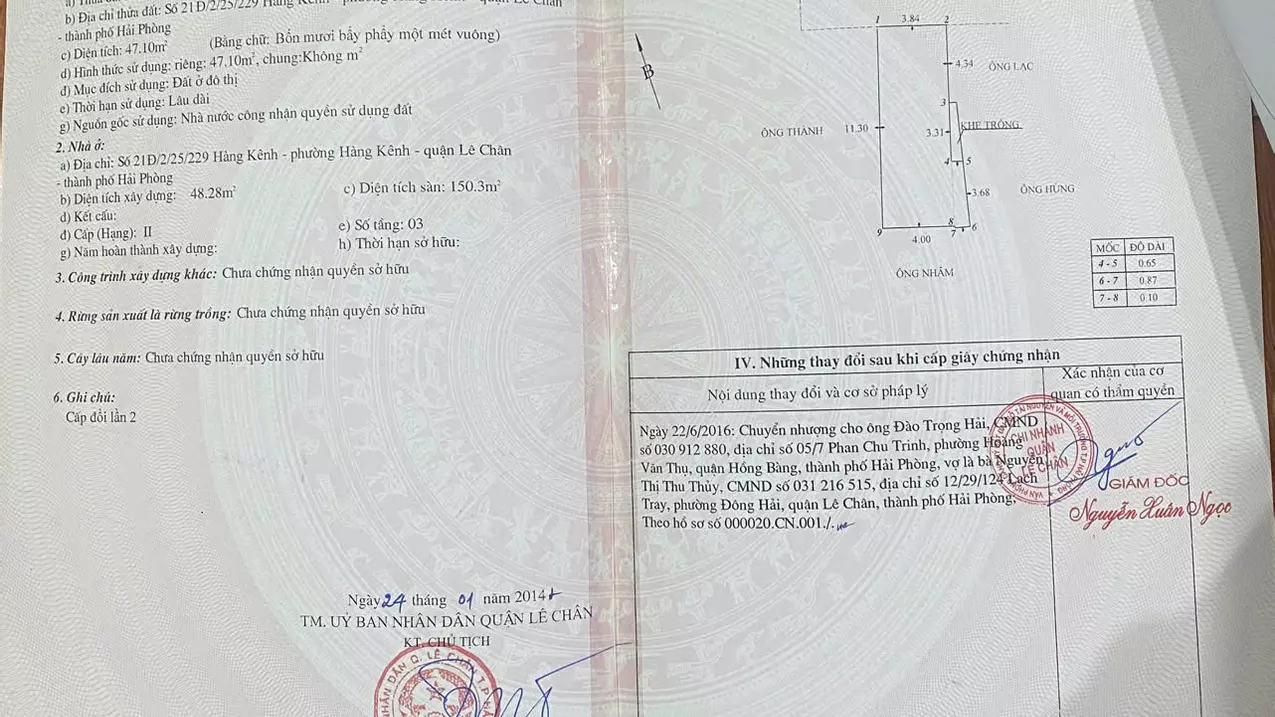 b) Địa chỉ thửa đất: Số 21Đ/2/25/229 Hàng Kênh - phường Hàng Kênh - quận Lê Chân
- thành phố Hải Phòng
c) Diện tích: 47.10m² (Bằng chữ: Bốn mươi bảy phẩy một mét vuông)
d) Hình thức sử dụng: riêng: 47.10m², chung:Không m²
đ) Mục đích sử dụng: Đất ở đô thị
e) Thời hạn sử dụng: Lâu dài
g) Nguồn gốc sử dụng: Nhà nước công nhận quyền sử dụng đất
2. Nhà ở:
a) Địa chỉ: Số 21Đ/2/25/229 Hàng Kênh - phường Hàng Kênh - quận Lê Chân
- thành phố Hải Phòng
b) Diện tích xây dựng: 48.28m² c) Diện tích sàn: 150.3m²
d) Kết cấu: e) Số tầng: 03
đ) Cấp (Hạng): II
g) Năm hoàn thành xây dựng: h) Thời hạn sở hữu:
3. Công trình xây dựng khác: Chưa chứng nhận quyền sở hữu
4. Rừng sản xuất là rừng trồng: Chưa chứng nhận quyền sở hữu
5. Cây lâu năm: Chưa chứng nhận quyền sở hữu
6. Ghi chú:
Cấp đổi lần 2
Ngày 24 tháng 01 năm 2014
TM. UỶ BAN NHÂN DÂN QUẬN LÊ CHÂN
KT. CHỦ TỊCH
NHÂN DÂN Q. LÊ CHÂN
1 3.84 2
B
4.34 ÔNG LẠC
3
ÔNG THÀNH 11.30 3.31 KHE TRỐNG
4 5
3.68 ÔNG HÙNG
9 8 7 6
4.00
ÔNG NHÂM
MỐC ĐỘ DÀI
4 - 5 0.65
6 - 7 0.87
7 - 8 0.10
IV. Những thay đổi sau khi cấp giấy chứng nhận
Nội dung thay đổi và cơ sở pháp lý
Xác nhận của cơ
quan có thẩm quyền
Ngày 22/6/2016: Chuyển nhượng cho ông Đào Trọng Hải, CMND
số 030 912 880, địa chỉ số 05/7 Phan Chu Trinh, phường Hoàng
Văn Thụ, quận Hồng Bàng, thành phố Hải Phòng, vợ là bà Nguyễn
Thị Thu Thủy, CMND số 031 216 515, địa chỉ số 12/29/124 Lạch
Tray, phường Đông Hải, quận Lê Chân, thành phố Hải Phòng;
Theo hồ sơ số 000020.CN.001./.
CHI NHÁNH
QUẬN
LÊ CHÂN
GIÁM ĐỐC
Nguyễn Xuân Ngọc